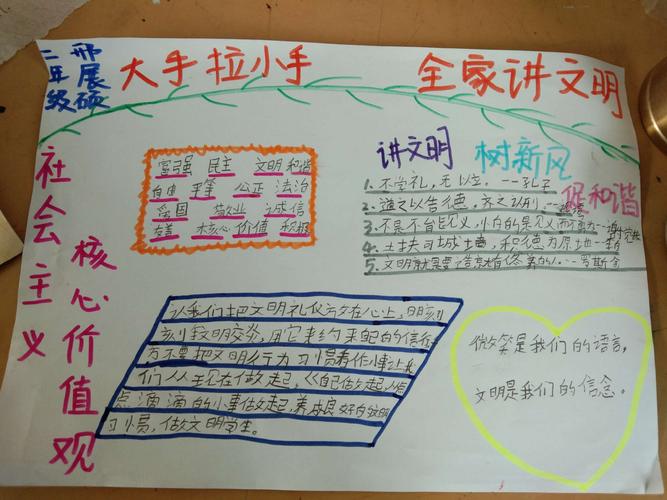 二年级
邢展硕
大手拉小手
全家讲文明
社会主义
核心价值观
富强 民主 文明 和谐
自由 平等 公正 法治
爱国 敬业 诚信
友善 核心 价值 积极
讲文明 树新风
促和谐
1.不学礼,无以立。--孔子
2.道之以告德,齐之以刑
3.不是不皆见义,小白的是见义而不为
4.土夫习城墙,积德为厚地
5.文明就是要造就有修养的人。--罗斯金
让我们把文明礼仪放在心上,时刻
刻文明交,用它来约束自的信行
不要把文明行为习惯看作小事让我
们从现在做起,从自己做起
点滴滴的小事做起,养成良好的文明
习惯,做文明学生。
微笑是我们的语言,
文明是我们的信念。